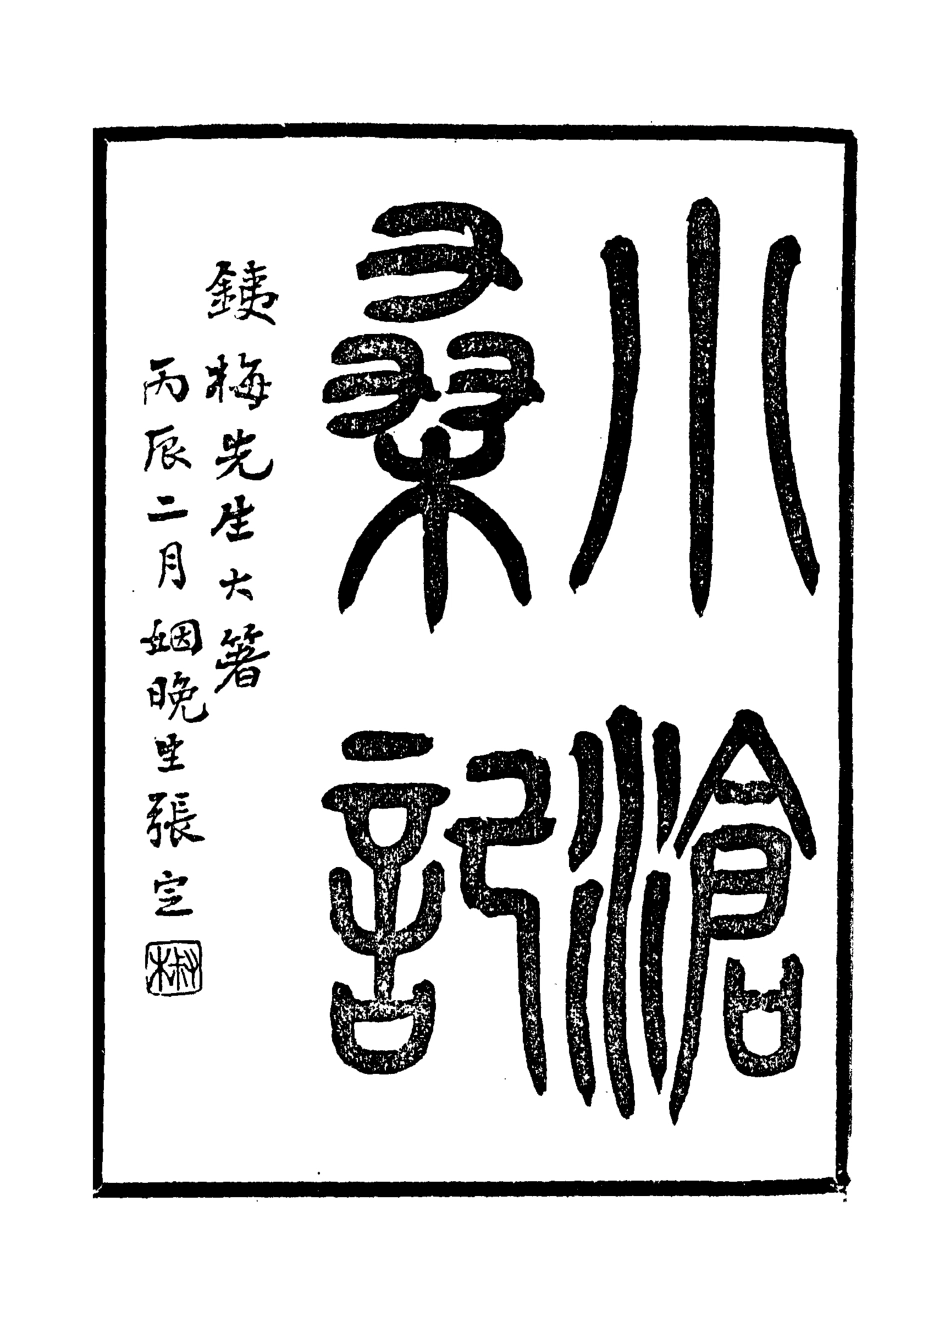 小滄
桑記
銕梅先生大箸
丙辰二月姻晚生張定
叔木